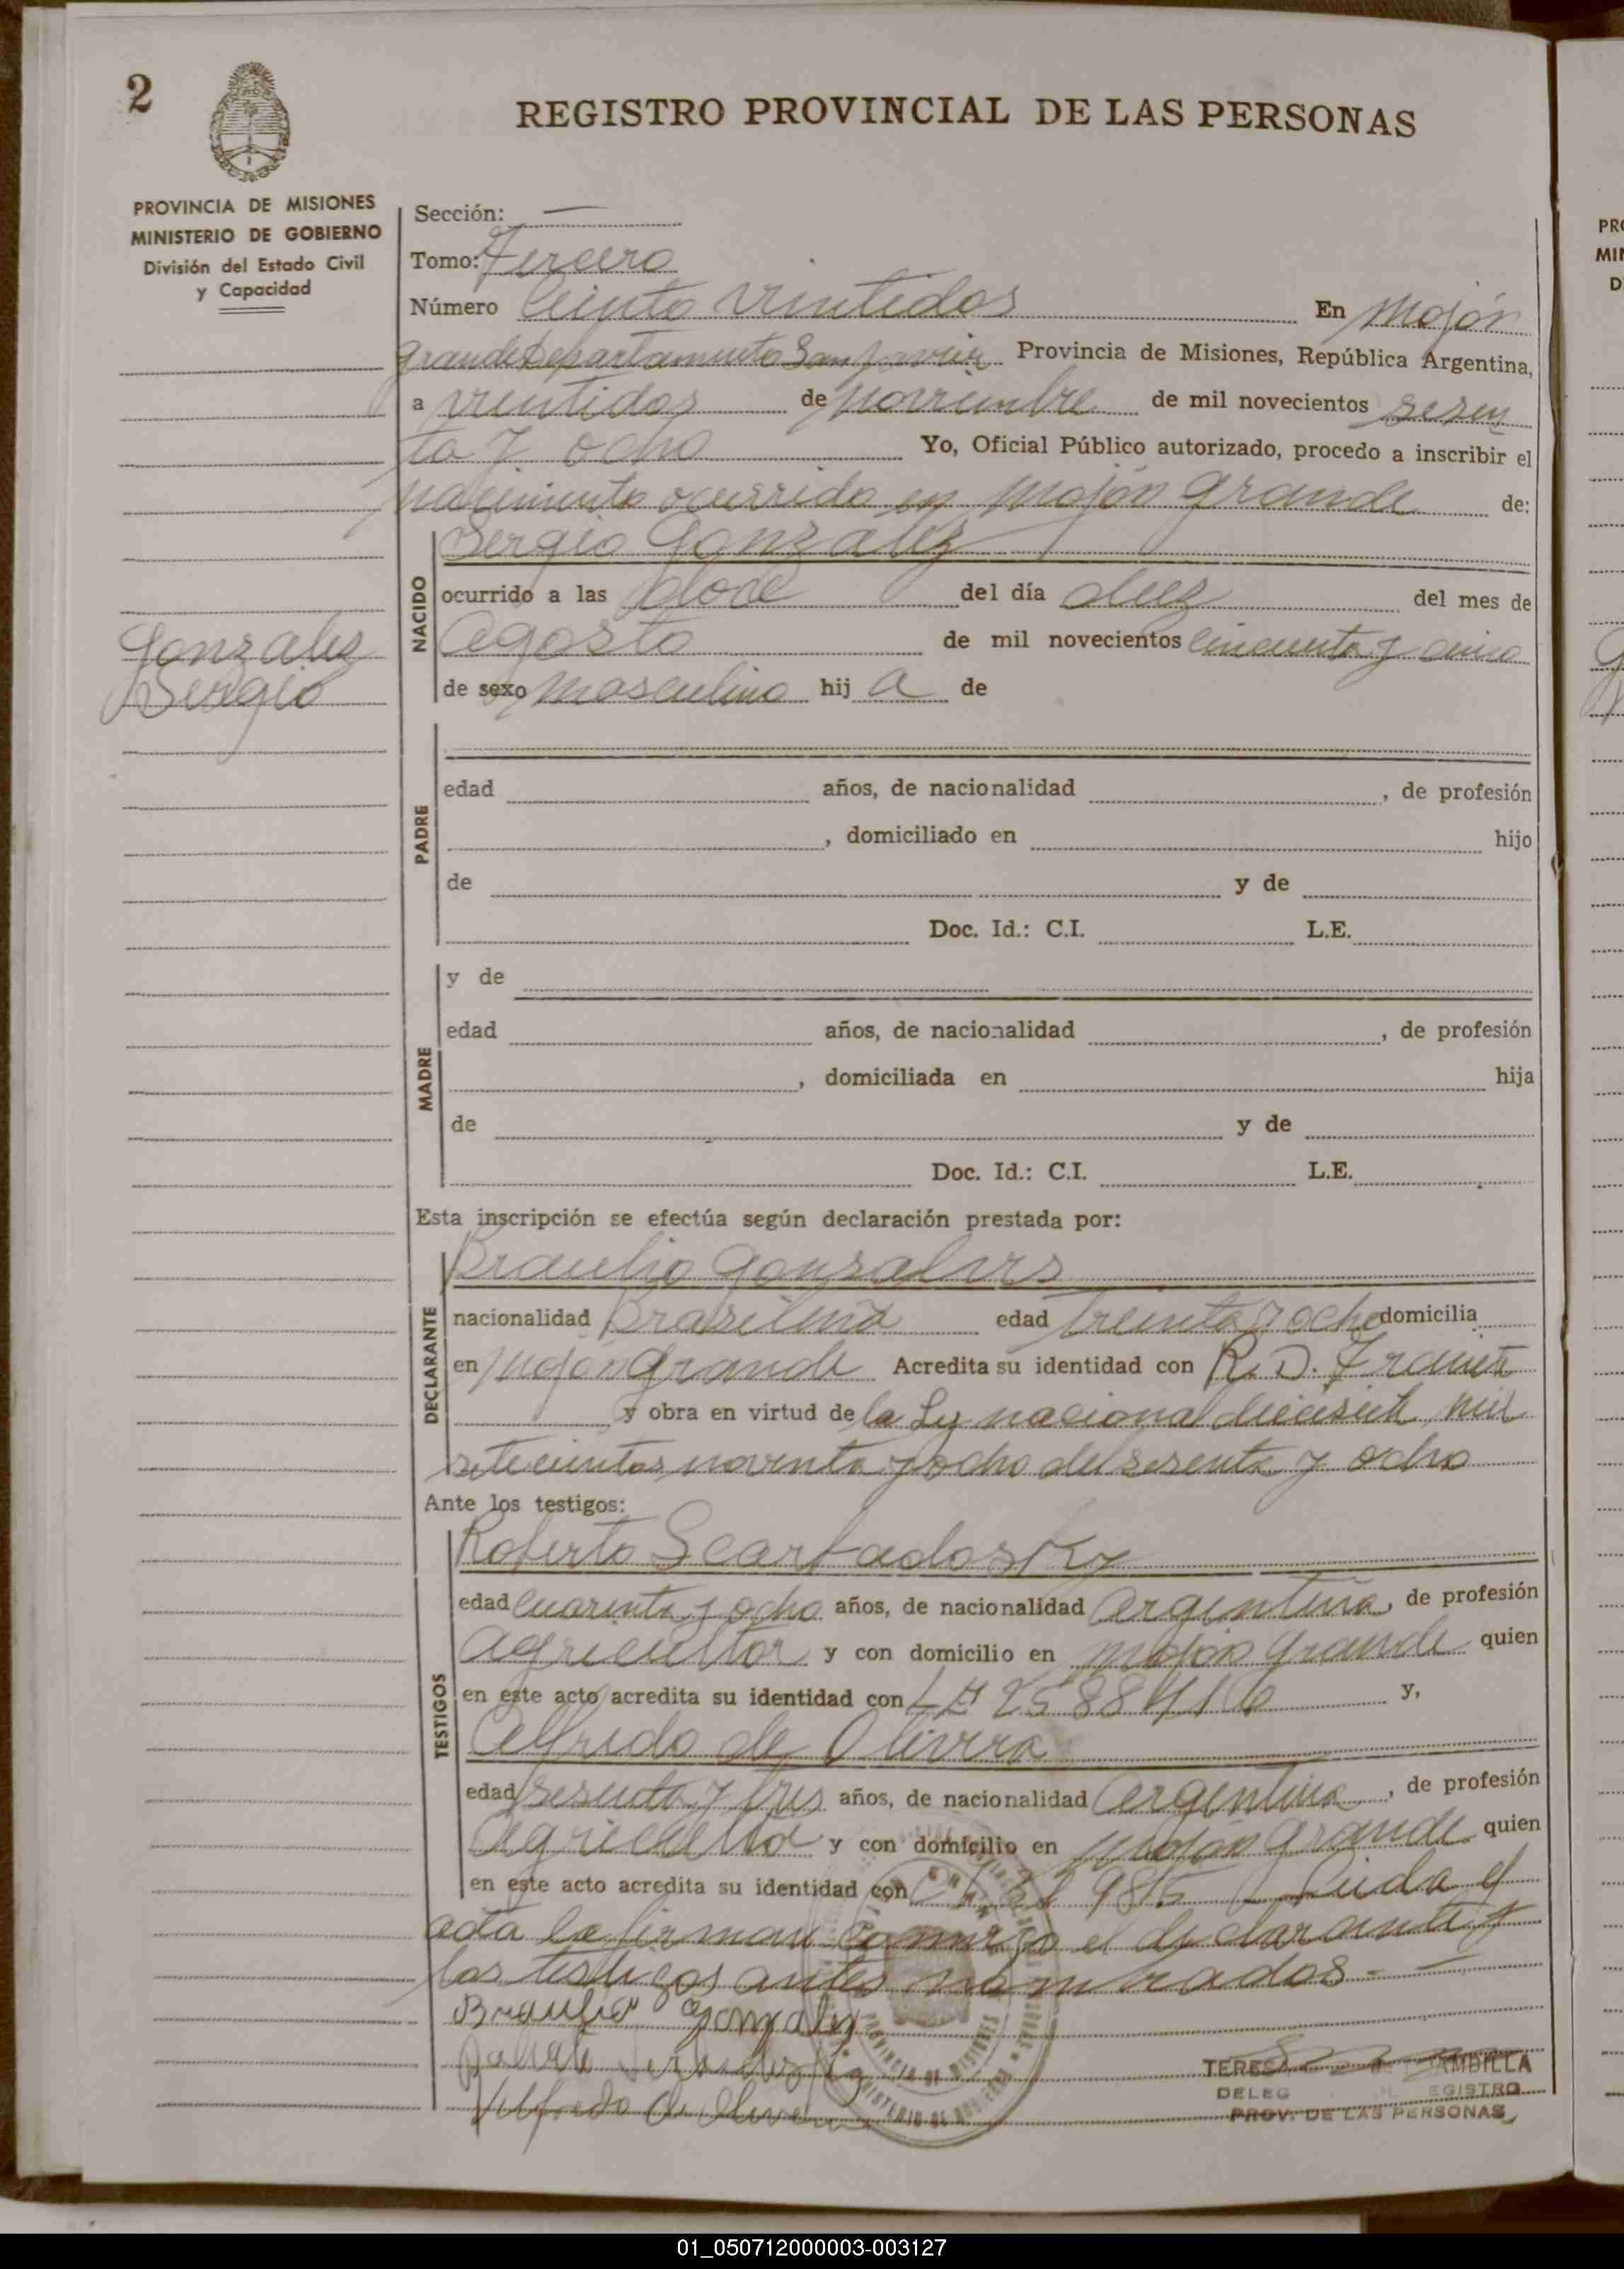 2
REGISTRO PROVINCIAL DE LAS PERSONAS
PROVINCIA DE MISIONES
MINISTERIO DE GOBIERNO
División del Estado Civil
y Capacidad
Sección:
Tomo: Tercero
Número Ciento vintidos En Mojón
Grande Departamento San Javier Provincia de Misiones, República Argentina,
a vintidos de noviembre de mil novecientos sesen
ta y ocho Yo, Oficial Público autorizado, procedo a inscribir el
nacimiento ocurrido en Mojón Grande de:
Sergio Gonzalez
NACIDO
ocurrido a las doce del día diez del mes de
Agosto de mil novecientos cincuenta y cinco
de sexo masculino hij a de
Gonzalez
Sergio
PADRE
edad años, de nacionalidad , de profesión
, domiciliado en hijo
de y de
Doc. Id.: C.I. L.E.
MADRE
y de
edad años, de nacionalidad , de profesión
, domiciliada en hija
de y de
Doc. Id.: C.I. L.E.
Esta inscripción se efectúa según declaración prestada por:
DECLARANTE
Braulio Gonsalvrs
nacionalidad Brasileña edad treinta y ocho domicilia
en Mojón Grande Acredita su identidad con R. D.
y obra en virtud de la Ley nacional diecisiete mil
setecientos noventa y ocho del sesenta y ocho
Ante los testigos:
TESTIGOS
Roberto Scarfadosky
edad cuarenta y ocho años, de nacionalidad Argentina, de profesión
Agricultor y con domicilio en Mojón Grande quien
en este acto acredita su identidad con y,
Alfredo de Olivera
edad sesenta y tres años, de nacionalidad Argentina, de profesión
Agricultor y con domicilio en Mojón Grande quien
en este acto acredita su identidad con Leida el
acta la firman conmigo el declarante y
los testigos antes nombrados.-
Braulio Gonzalez
Alfredo de Olivera
TERESA
DELEG
PROV. DE LAS PERSONAS
PRO
MIN
D
01_050712000003-003127